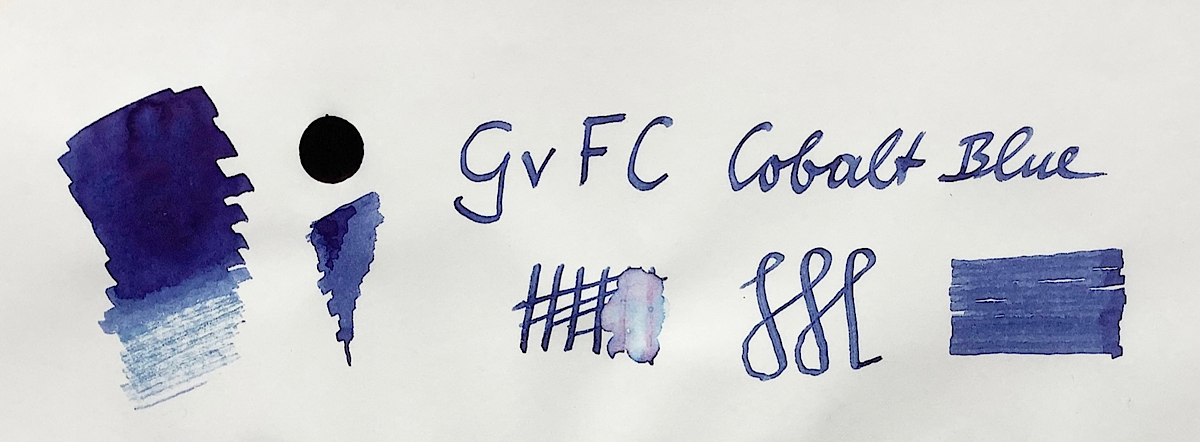 GvFC Cobalt Blue